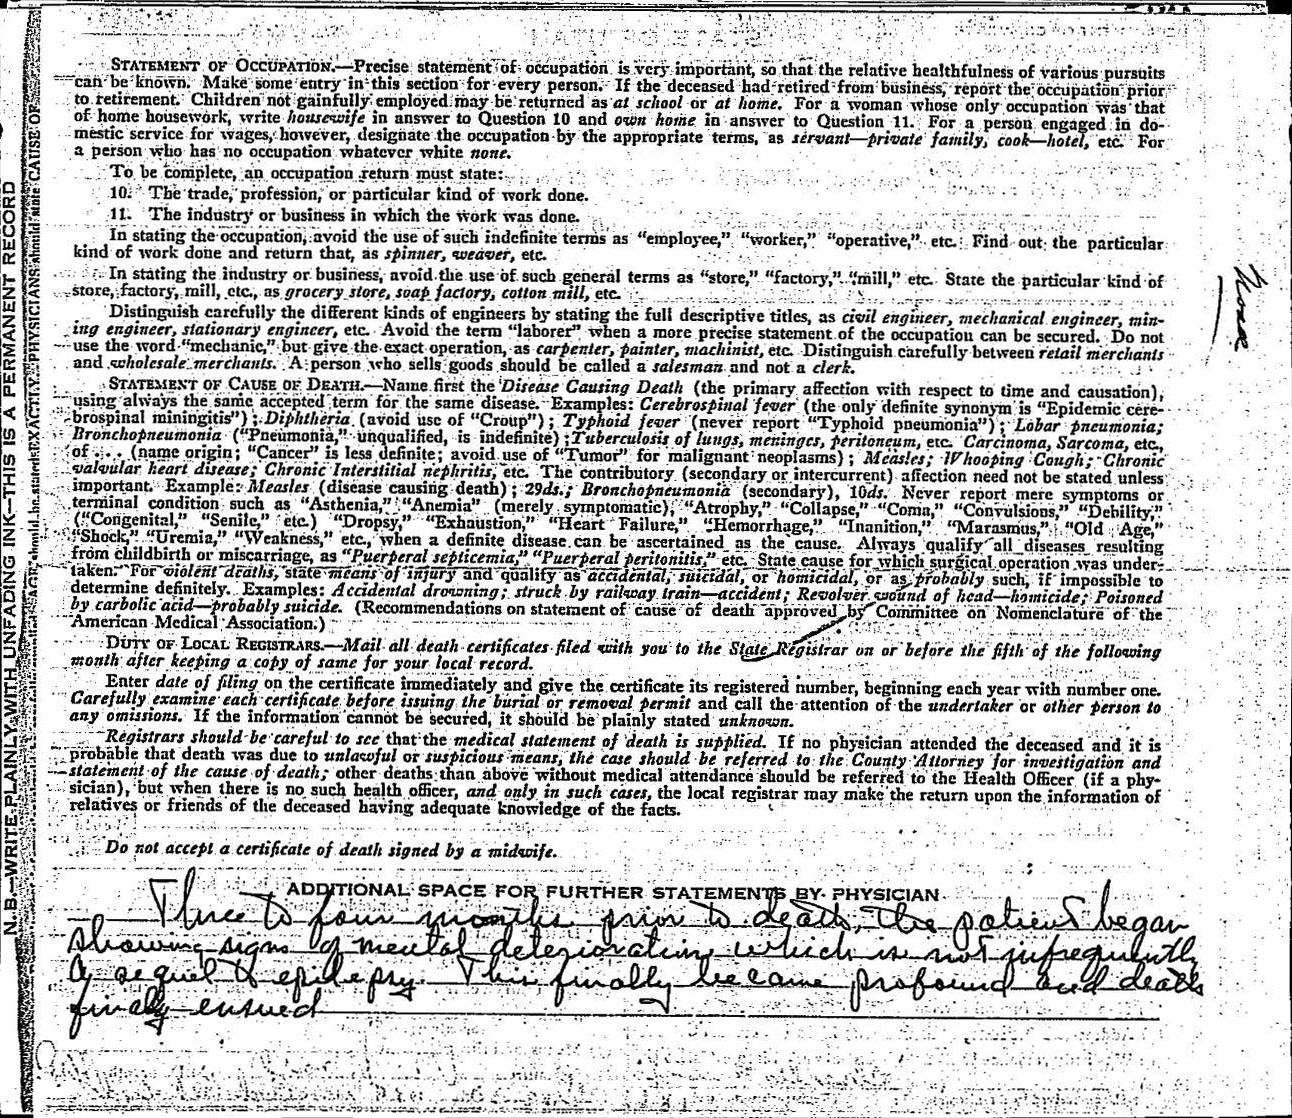 STATEMENT OF OCCUPATION.—Precise statement of occupation is very important, so that the relative healthfulness of various pursuits
can be known. Make some entry in this section for every person. If the deceased had retired from business, report the occupation prior
to retirement. Children not gainfully employed may be returned as at school or at home. For a woman whose only occupation was that
of home housework, write housewife in answer to Question 10 and own home in answer to Question 11. For a person engaged in do-
mestic service for wages, however, designate the occupation by the appropriate terms, as servant—private family, cook—hotel, etc. For
a person who has no occupation whatever white none.
To be complete, an occupation return must state:
10. The trade, profession, or particular kind of work done.
11. The industry or business in which the work was done.
In stating the occupation, avoid the use of such indefinite terms as "employee," "worker," "operative," etc. Find out the particular
kind of work done and return that, as spinner, weaver, etc.
In stating the industry or business, avoid the use of such general terms as "store," "factory," "mill," etc. State the particular kind of
store, factory, mill, etc., as grocery store, soap factory, cotton mill, etc.
Distinguish carefully the different kinds of engineers by stating the full descriptive titles, as civil engineer, mechanical engineer, min-
ing engineer, stationary engineer, etc. Avoid the term "laborer" when a more precise statement of the occupation can be secured. Do not
use the word "mechanic," but give the exact operation, as carpenter, painter, machinist, etc. Distinguish carefully between retail merchants
and wholesale merchants. A person who sells goods should be called a salesman and not a clerk.
STATEMENT OF CAUSE OF DEATH.—Name first the Disease Causing Death (the primary affection with respect to time and causation),
using always the same accepted term for the same disease. Examples: Cerebrospinal fever (the only definite synonym is "Epidemic cere-
brospinal miningitis"); Diphtheria (avoid use of "Croup"); Typhoid fever (never report "Typhoid pneumonia"); Lobar pneumonia;
Bronchopneumonia ("Pneumonia," unqualified, is indefinite); Tuberculosis of lungs, meninges, peritoneum, etc. Carcinoma, Sarcoma, etc.,
of . . . (name origin; "Cancer" is less definite; avoid use of "Tumor" for malignant neoplasms); Measles; Whooping Cough; Chronic
valvular heart disease; Chronic Interstitial nephritis, etc. The contributory (secondary or intercurrent) affection need not be stated unless
important. Example: Measles (disease causing death); 29ds.; Bronchopneumonia (secondary), 10ds. Never report mere symptoms or
terminal condition such as "Asthenia," "Anemia" (merely symptomatic), "Atrophy," "Collapse," "Coma," "Convulsions," "Debility,"
("Congenital," "Senile," etc.) "Dropsy," "Exhaustion," "Heart Failure," "Hemorrhage," "Inanition," "Marasmus," "Old Age,"
"Shock," "Uremia," "Weakness," etc., when a definite disease can be ascertained as the cause. Always qualify all diseases resulting
from childbirth or miscarriage, as "Puerperal septicemia," "Puerperal peritonitis," etc. State cause for which surgical operation was under-
taken. For violent deaths, state means of injury and qualify as accidental, suicidal, or homicidal, or as probably such, if impossible to
determine definitely. Examples: Accidental drowning; struck by railway train—accident; Revolver wound of head—homicide; Poisoned
by carbolic acid—probably suicide. (Recommendations on statement of cause of death approved by Committee on Nomenclature of the
American Medical Association.)
DUTY OF LOCAL REGISTRARS.—Mail all death certificates filed with you to the State Registrar on or before the fifth of the following
month after keeping a copy of same for your local record.
Enter date of filing on the certificate immediately and give the certificate its registered number, beginning each year with number one.
Carefully examine each certificate before issuing the burial or removal permit and call the attention of the undertaker or other person to
any omissions. If the information cannot be secured, it should be plainly stated unknown.
Registrars should be careful to see that the medical statement of death is supplied. If no physician attended the deceased and it is
probable that death was due to unlawful or suspicious means, the case should be referred to the County Attorney for investigation and
statement of the cause of death; other deaths than above without medical attendance should be referred to the Health Officer (if a phy-
sician), but when there is no such health officer, and only in such cases, the local registrar may make the return upon the information of
relatives or friends of the deceased having adequate knowledge of the facts.
Do not accept a certificate of death signed by a midwife.
ADDITIONAL SPACE FOR FURTHER STATEMENTS BY PHYSICIAN
Three to four months prior to death, the patient began
showing signs of mental deterioration which is not infrequently
a sequel to epilepsy. This finally became profound and death
finally ensued
N. B.—WRITE PLAINLY WITH UNFADING INK—THIS IS A PERMANENT RECORD
AGE should be stated EXACTLY. PHYSICIANS should state CAUSE OF
None